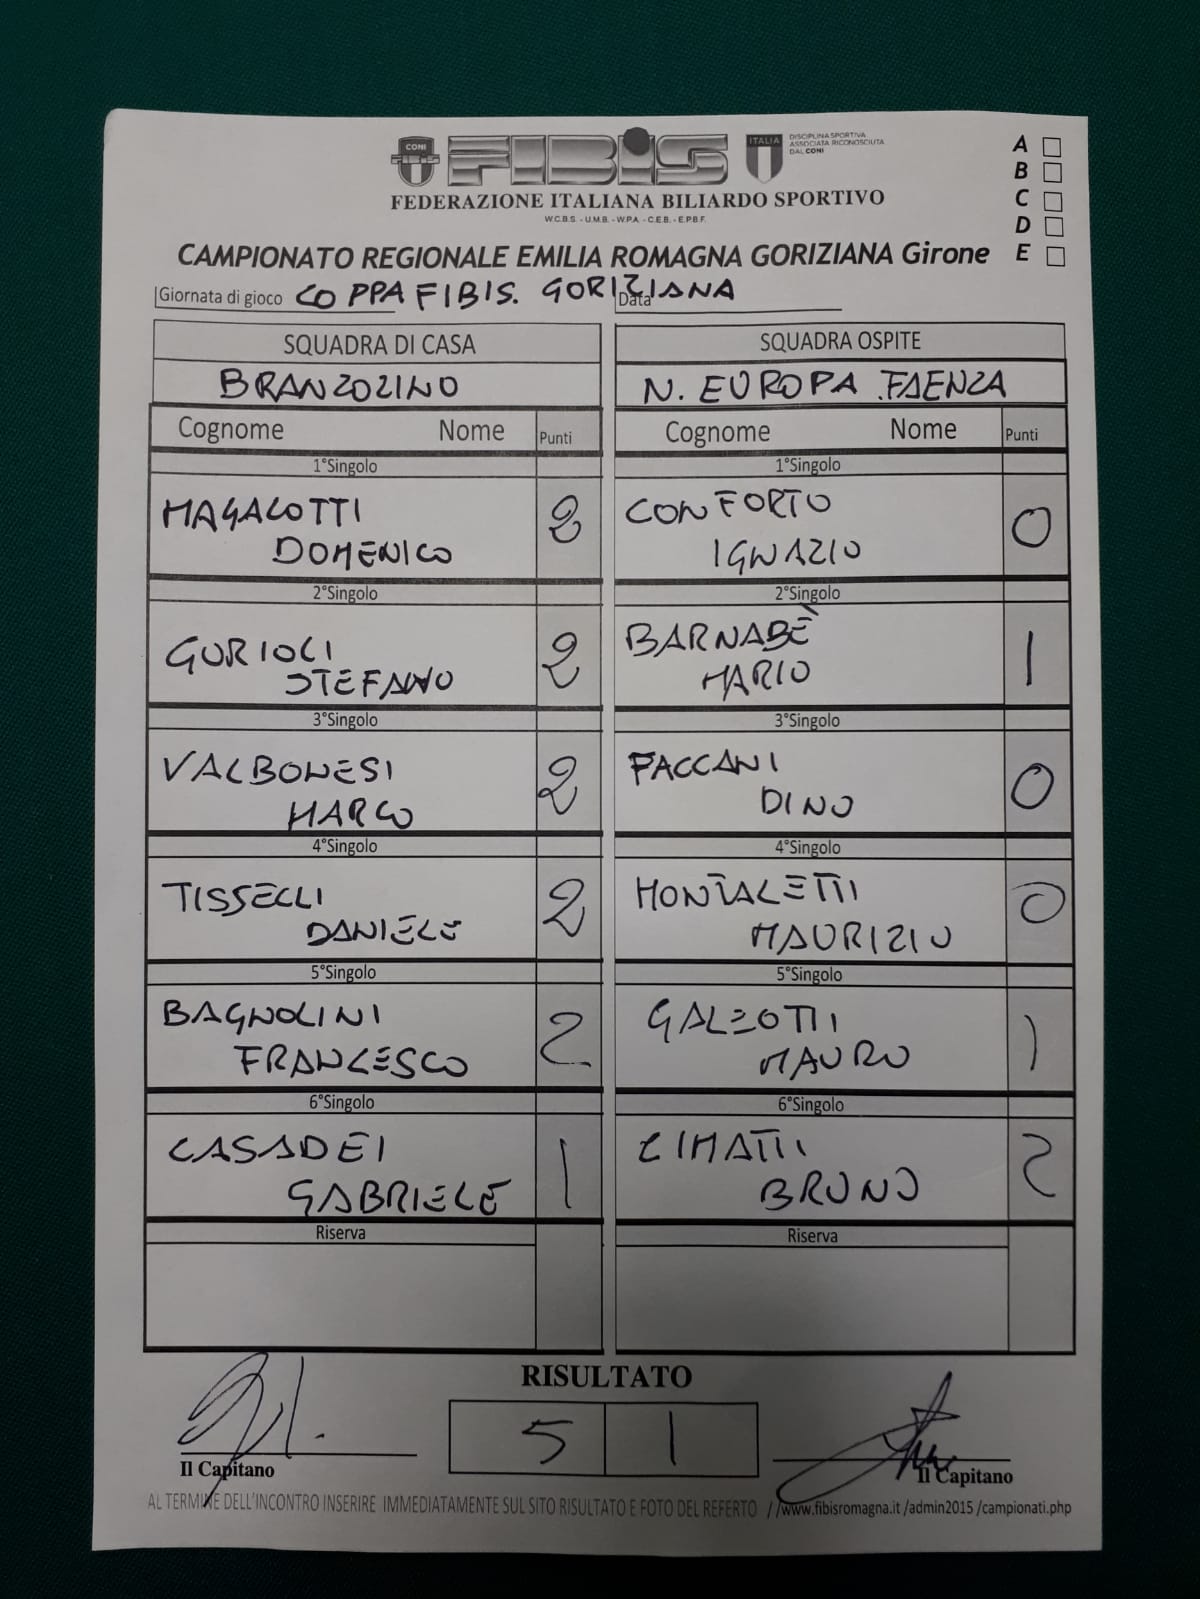 CONI
FIBIS
FIBiS
ITALIA
DISCIPLINA SPORTIVA
ASSOCIATA RICONOSCIUTA
DAL CONI
FEDERAZIONE ITALIANA BILIARDO SPORTIVO
W.C.B.S. - U.M.B. - W.P.A. - C.E.B. - E.P.B.F.
A
B
C
D
E
CAMPIONATO REGIONALE EMILIA ROMAGNA GORIZIANA Girone
Giornata di gioco COPPA FIBIS. GORIZIANA Data
SQUADRA DI CASA SQUADRA OSPITE
BRANZOLINO N. EUROPA FAENZA
Cognome Nome Punti Cognome Nome Punti
1°Singolo 1°Singolo
MAGALOTTI DOMENICO 2 CONFORTO IGNAZIO 0
2°Singolo 2°Singolo
GURIOLI STEFANO 2 BARNABÈ MARIO 1
3°Singolo 3°Singolo
VALBONESI MARCO 2 FACCANI DINO 0
4°Singolo 4°Singolo
TISSELLI DANIELE 2 MONTALETTI MAURIZIO 0
5°Singolo 5°Singolo
BAGNOLINI FRANCESCO 2 GALEOTTI MAURO 1
6°Singolo 6°Singolo
CASADEI GABRIELE 1 CIMATTI BRUNO 2
Riserva Riserva
RISULTATO
5 1
Il Capitano Il Capitano
AL TERMINE DELL'INCONTRO INSERIRE IMMEDIATAMENTE SUL SITO RISULTATO E FOTO DEL REFERTO / /www.fibisromagna.it /admin2015 /campionati.php